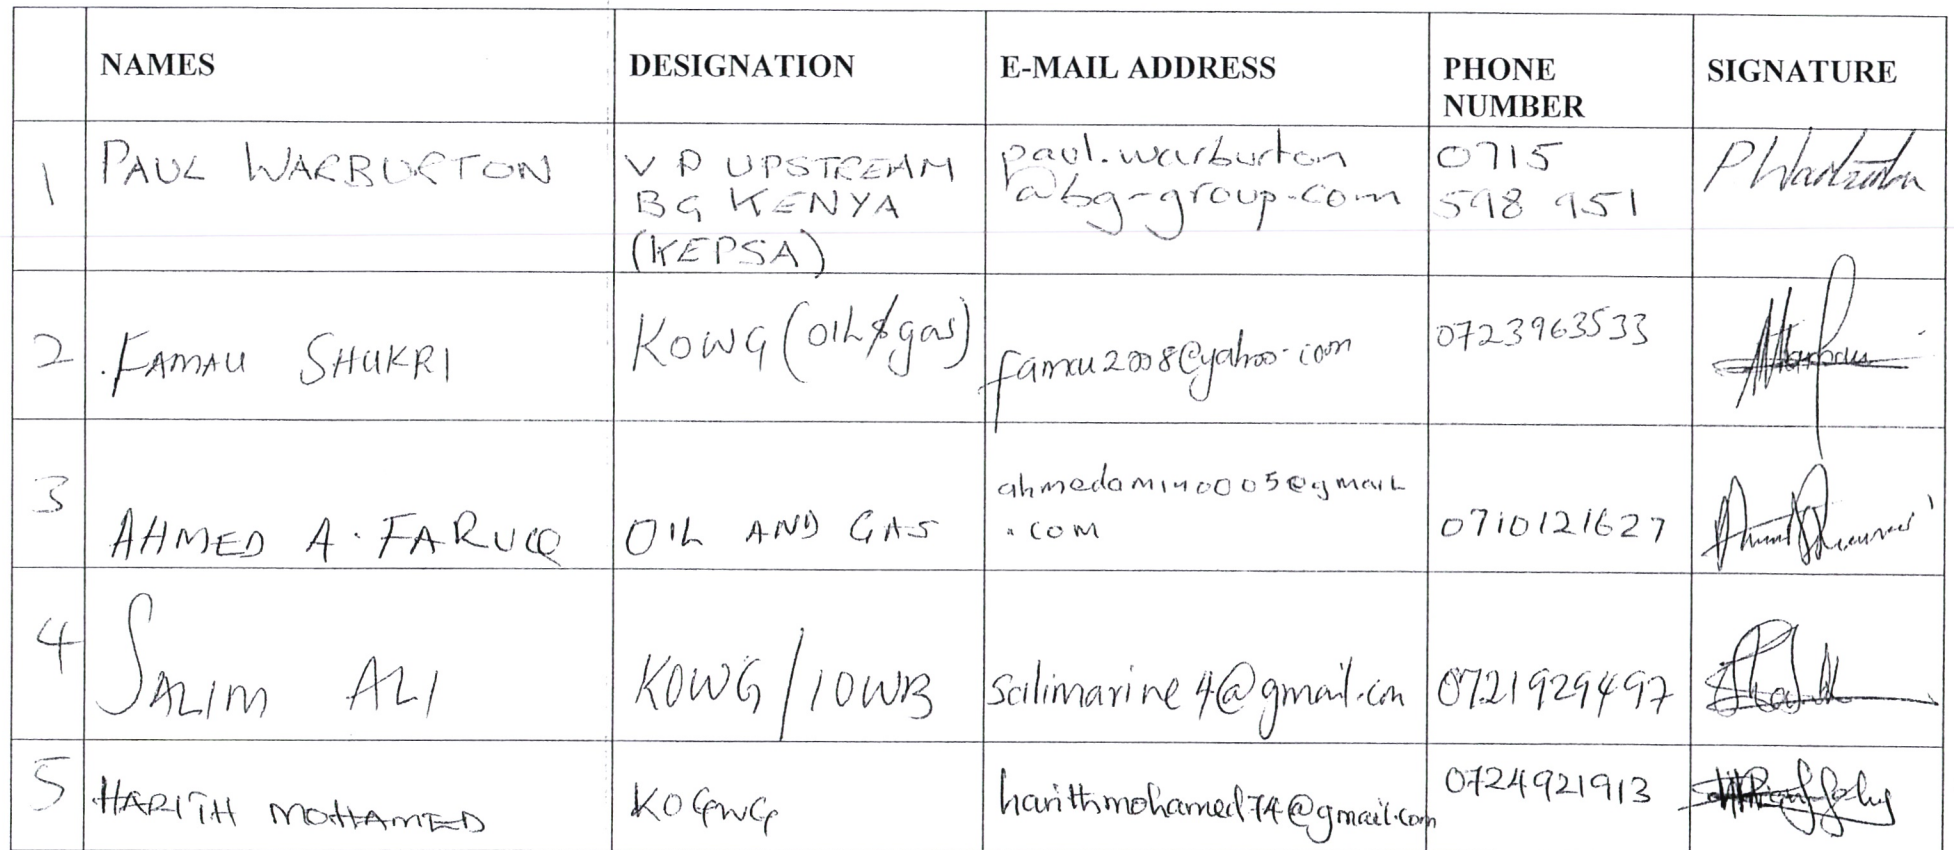 NAMES DESIGNATION E-MAIL ADDRESS PHONE NUMBER SIGNATURE
1 PAUL WARBURTON VP UPSTREAM BG KENYA (KEPSA) paul.warburton@bg-group.com 0715 598 951 P Warburton
2 FAMAU SHUKRI KOWG (OIL & gas) famau2008@yahoo.com 0723963533
3 AHMED A. FARUQ OIL AND GAS ahmedamin0005@gmail.com 0710121627
4 SALIM ALI KOWG/IOWB salimarine4@gmail.com 0721929497
5 HARITH MOHAMED KOGWG harithmohamed74@gmail.com 0724921913